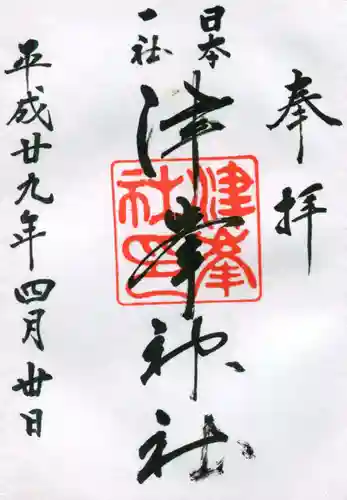 奉拝
日本
一社
津峯神社
津峯
社印
平成廿九年四月廿日